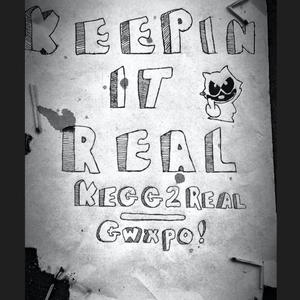 KEEPIN
IT
REAL
KEGG2REAL
GWXPO!